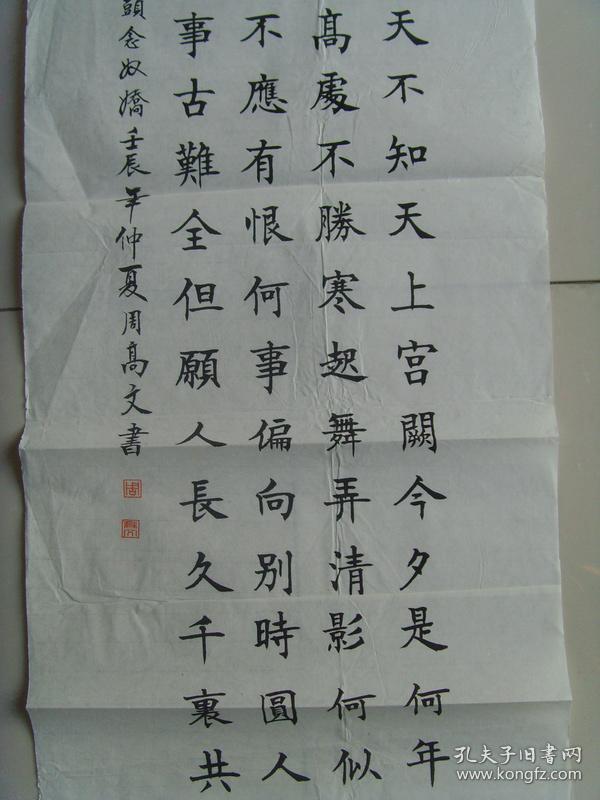 天不知天上宫闕今夕是何年
高處不勝寒起舞弄清影何似
不應有恨何事偏向別時圓人
事古難全但願人長久千裏共
頭念奴嬌壬辰年仲夏周高文書
周
孔夫子旧书网
www.kongfz.com